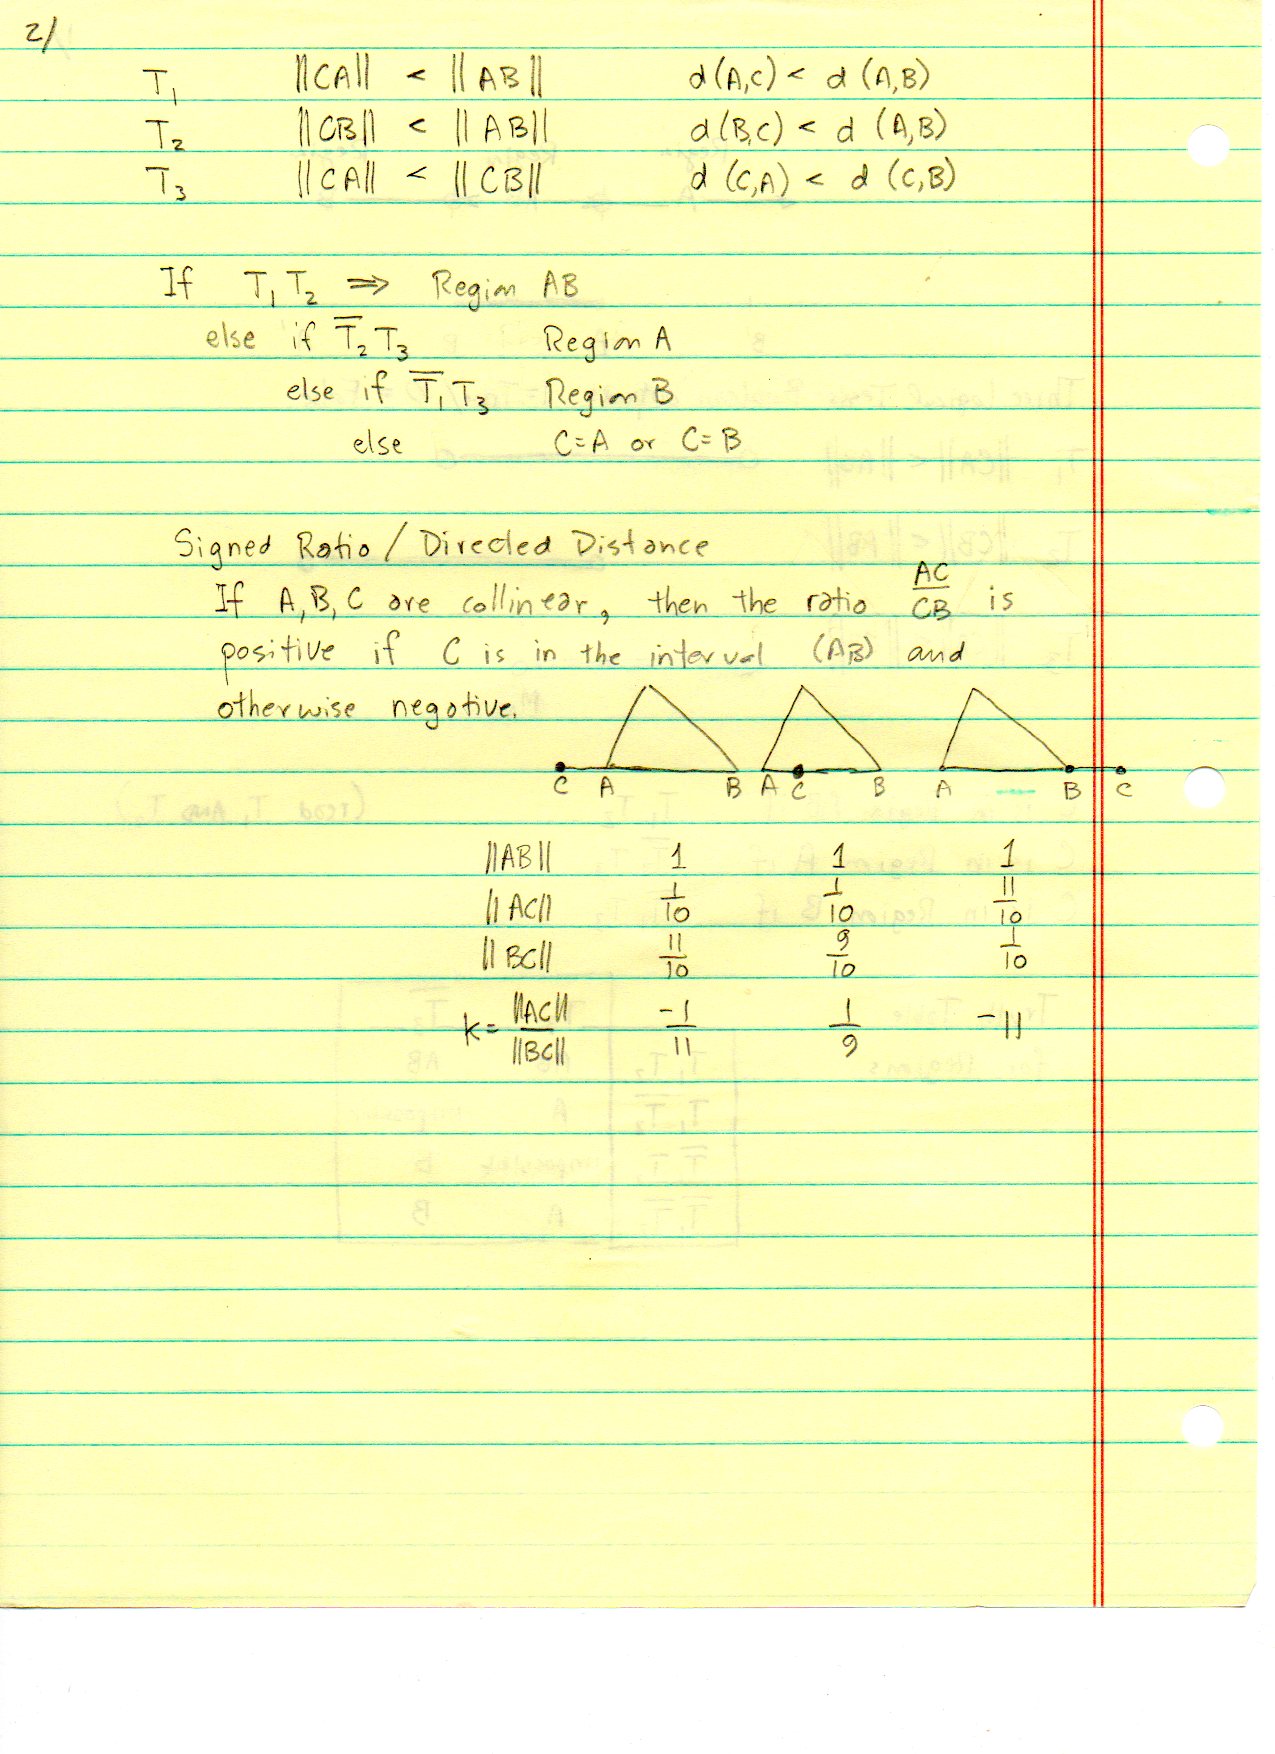 2/
T₁ ||CA|| < ||AB|| d(A,C) < d(A,B)
T₂ ||CB|| < ||AB|| d(B,C) < d(A,B)
T₃ ||CA|| < ||CB|| d(C,A) < d(C,B)
If T₁T₂ ⇒ Region AB
else if T̅₂T₃ Region A
else if T̅₁T₃ Region B
else C=A or C=B
Signed Ratio / Directed Distance
If A, B, C are collinear, then the ratio AC/CB is
positive if C is in the interval (AB) and
otherwise negative.
C A B A C B A B C
||AB|| 1 1 1
||AC|| 1/10 1/10 11/10
||BC|| 11/10 9/10 1/10
k= ||AC||/||BC|| -1/11 1/9 -11